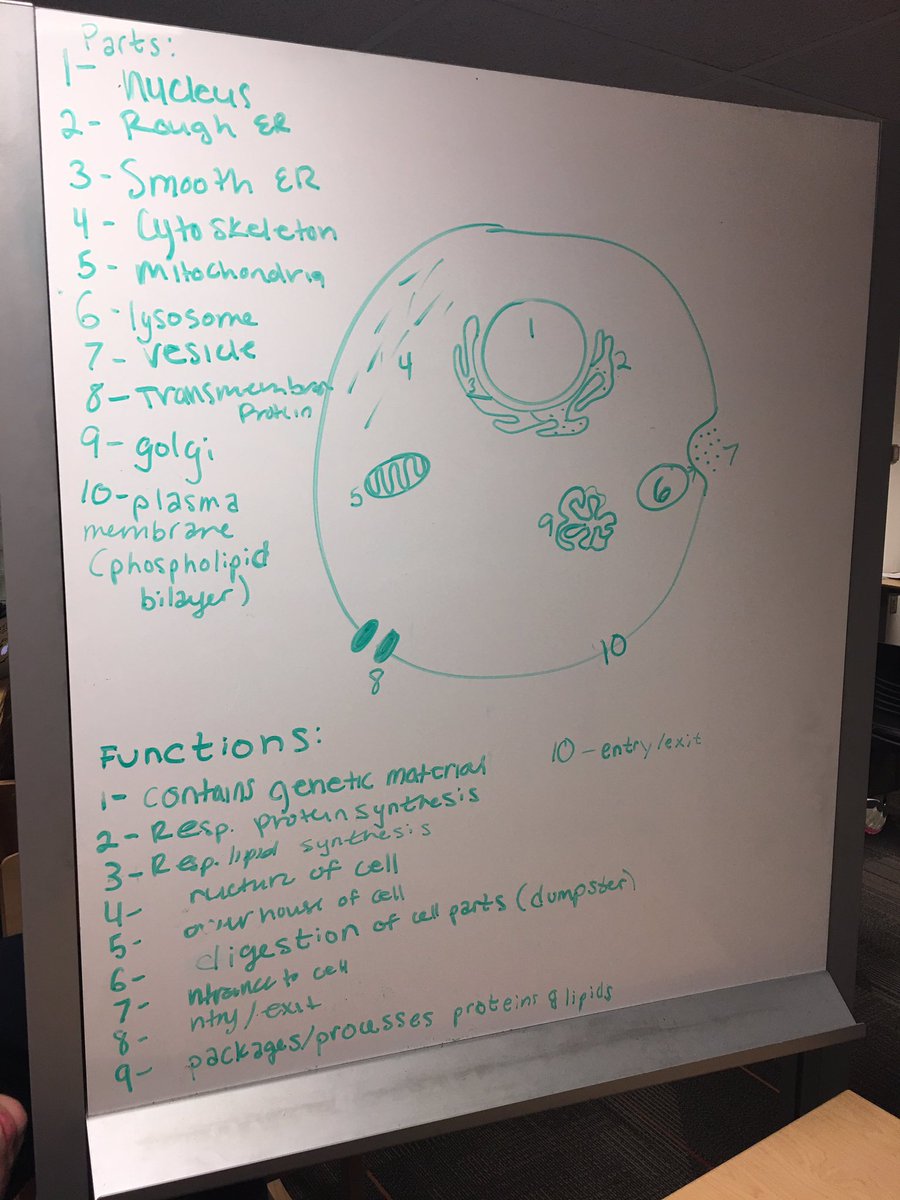 Parts:
1- Nucleus
2- Rough ER
3- Smooth ER
4- Cytoskeleton
5- Mitochondria
6- lysosome
7- vesicle
8- Transmembran
Protein
9- golgi
10- plasma
membrane
(phospholipid
bilayer)
1
2
3
4
5
6
7
9
10
8
Functions:
1- contains genetic material
2- Resp. protein synthesis
3- Resp. lipid synthesis
4- ructure of cell
5- ower house of cell
6- digestion of cell parts (dumpster)
7- ntrance to cell
8- ntry/exit
9- packages/processes proteins & lipids
10 - entry/exit